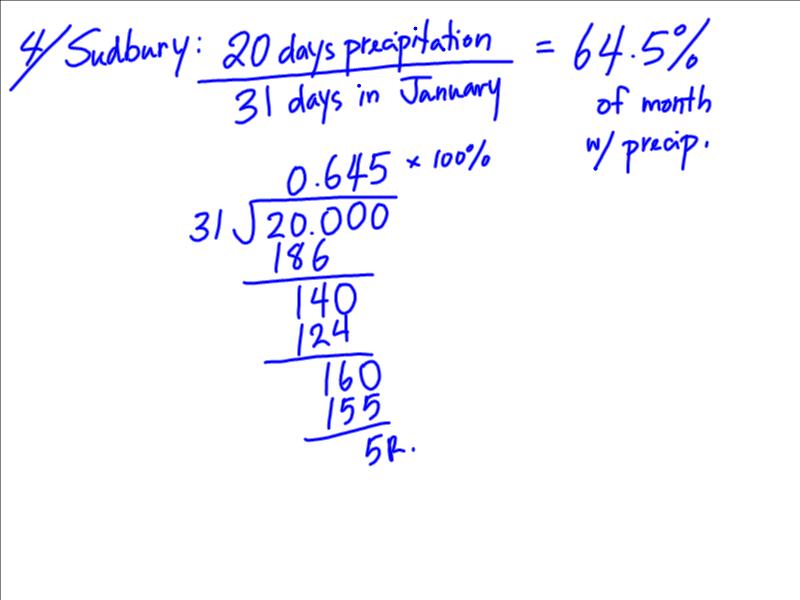 4/ Sudbury: 20 days precipitation = 64.5%
31 days in January
of month
w/ precip.
0.645 × 100%
31 √20.000
186
140
124
160
155
5R.